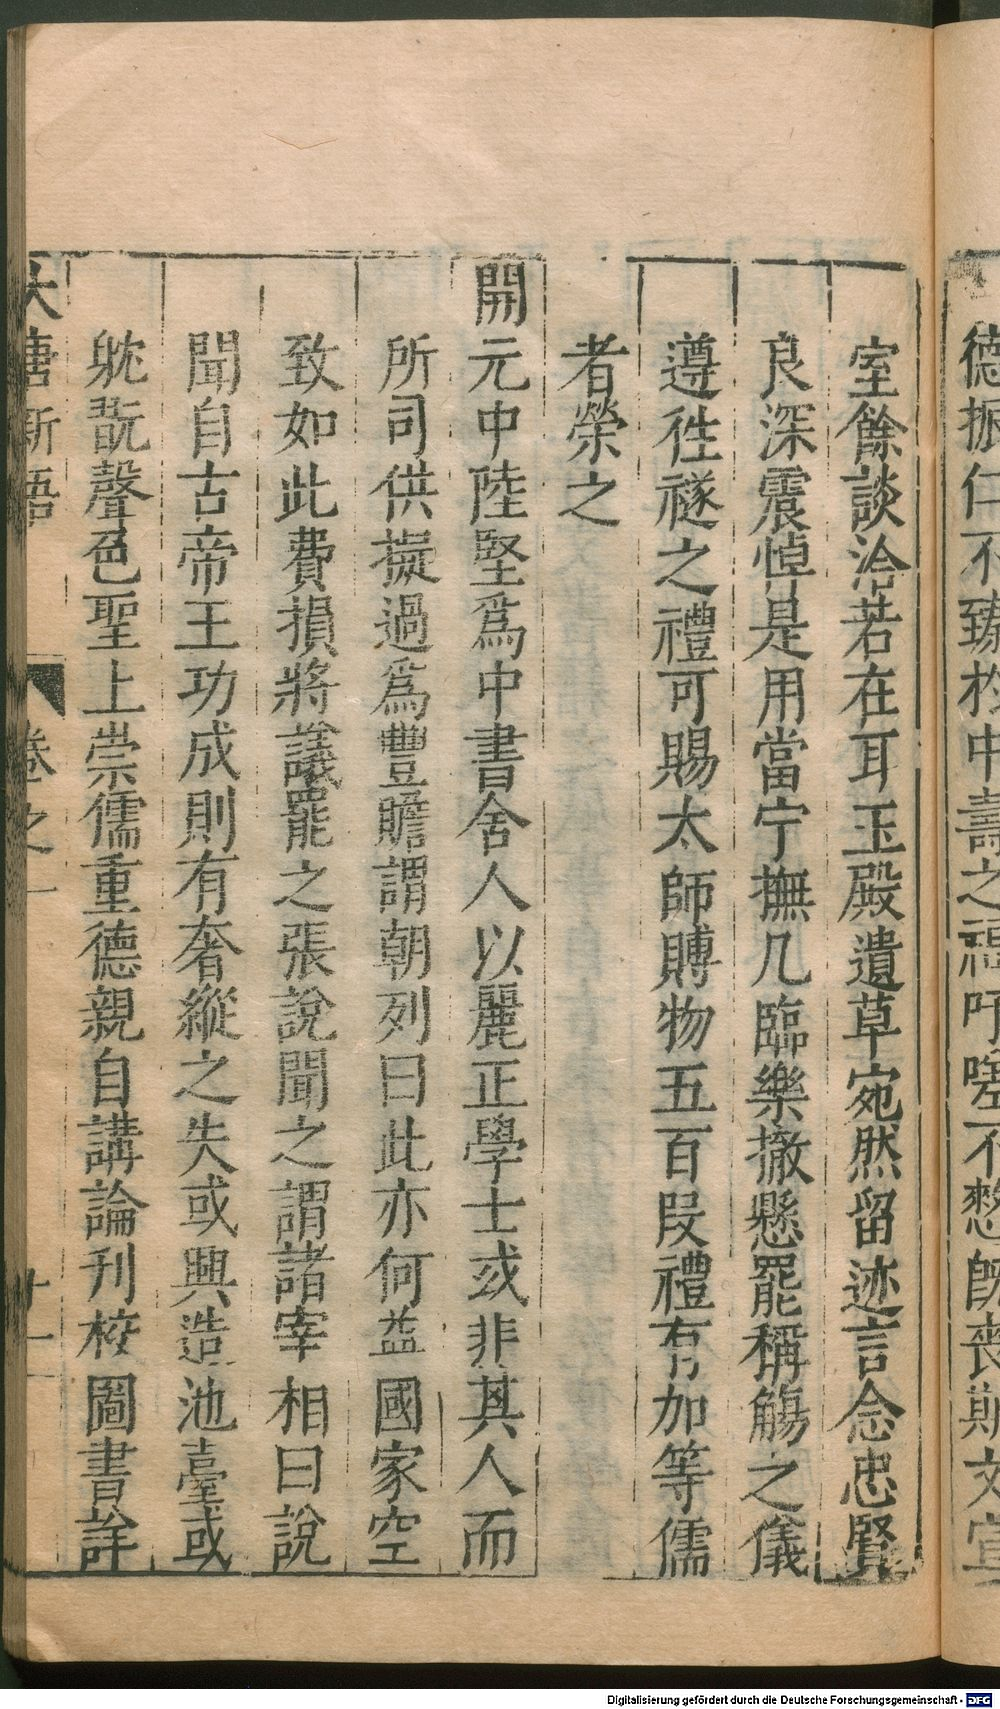 德振仁不臻於中壽之福吁嗟不憖旣喪斯文宣
室餘談洽若在耳玉殿遺草宛然留迹言念忠賢
良深震悼是用當宁撫几臨樂撤懸罷稱觴之儀
遵徃禭之禮可賜太師賻物五百段禮有加等儒
者榮之
開元中陸堅爲中書舍人以麗正學士或非其人而
所司供擬過爲豐贍謂朝列曰此亦何益國家空
致如此費損將議罷之張說聞之謂諸宰相曰說
聞自古帝王功成則有奢縱之失或興造池臺或
躭翫聲色聖上崇儒重德親自講論刊校圖書詳
大唐新語 卷之一 十一
Digitalisierung gefördert durch die Deutsche Forschungsgemeinschaft - DFG